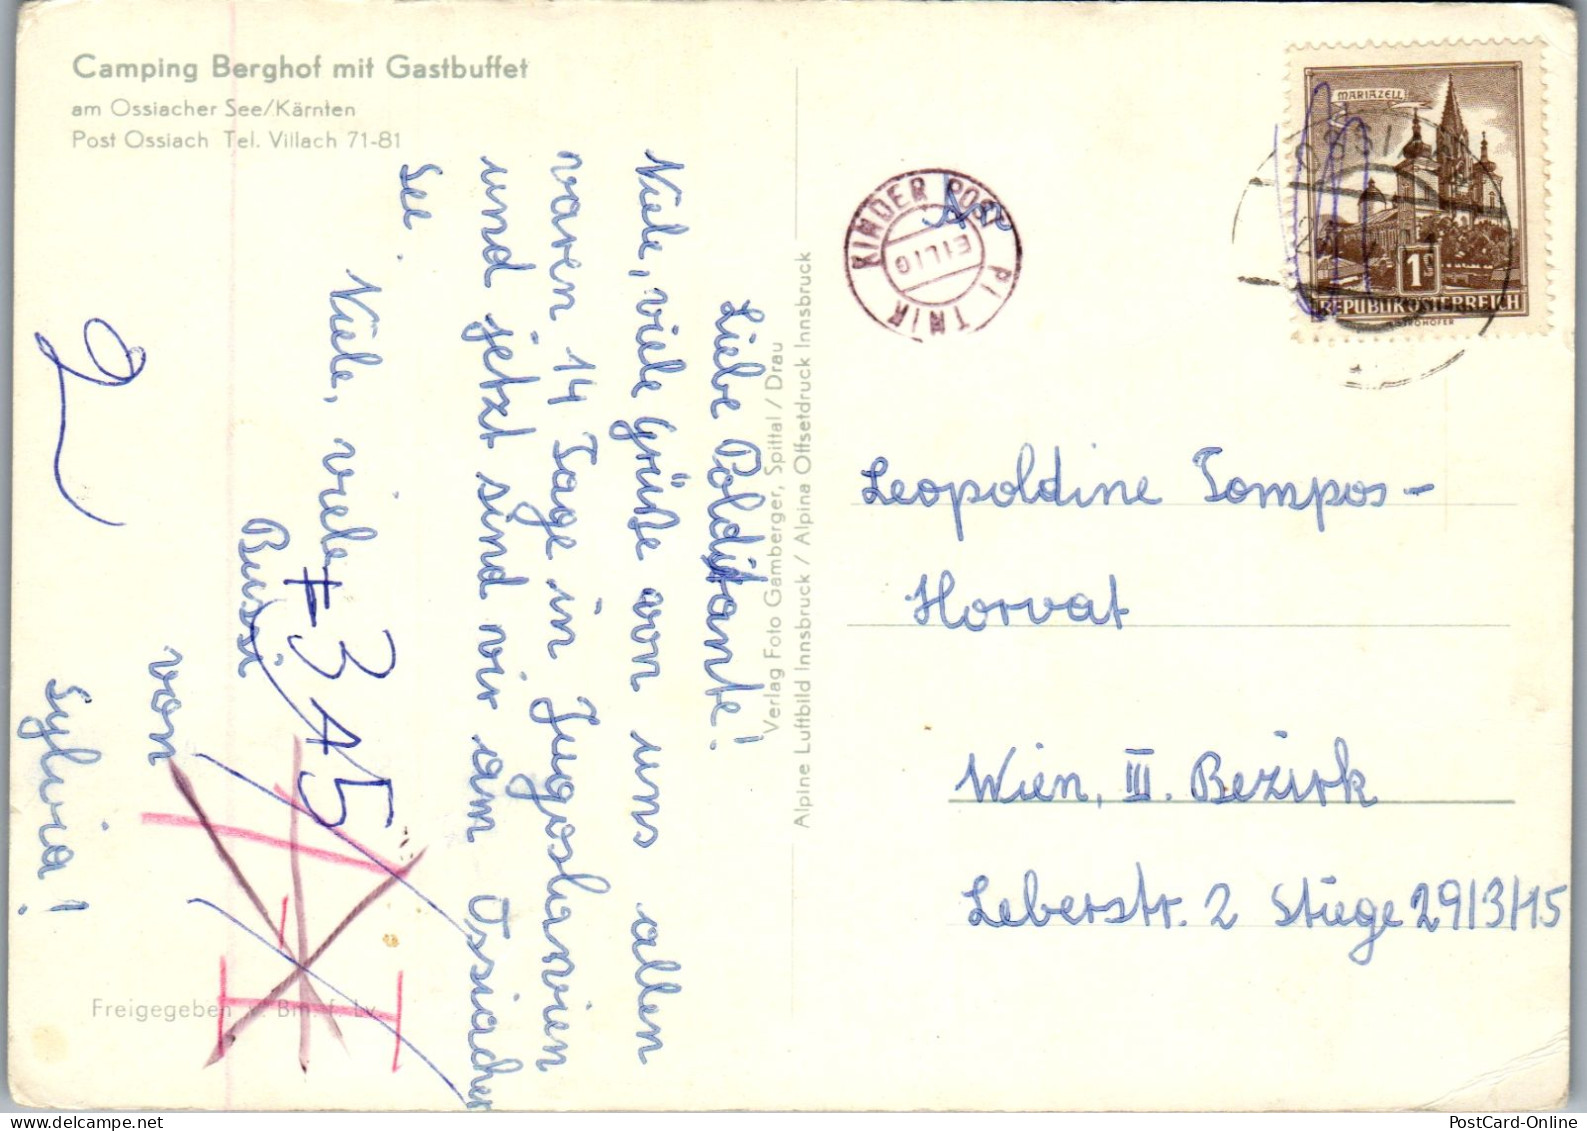 Camping Berghof mit Gastbuffet
am Ossiacher See/Kärnten
Post Ossiach Tel. Villach 71-81
Liebe Polditante!
Viele, viele Grüße von uns allen
waren 14 Tage in Jugoslawien
und jetzt sind wir am Ossiacher
See.
Viele, viele
Bussi
von
Sylvia!
2
3
45
Freigegeben v. Bm. f. Lv.
Verlag Foto Gamberger, Spittal / Drau
Alpine Luftbild Innsbruck / Alpina Offsetdruck Innsbruck
KINDER POST
EILIG
An
MARIAZELL
1S
REPUBLIK ÖSTERREICH
OSSI
Leopoldine Tompos-
Horvat
Wien, III. Bezirk
Leberstr. 2 Stiege 29/3/15
PostCard-Online